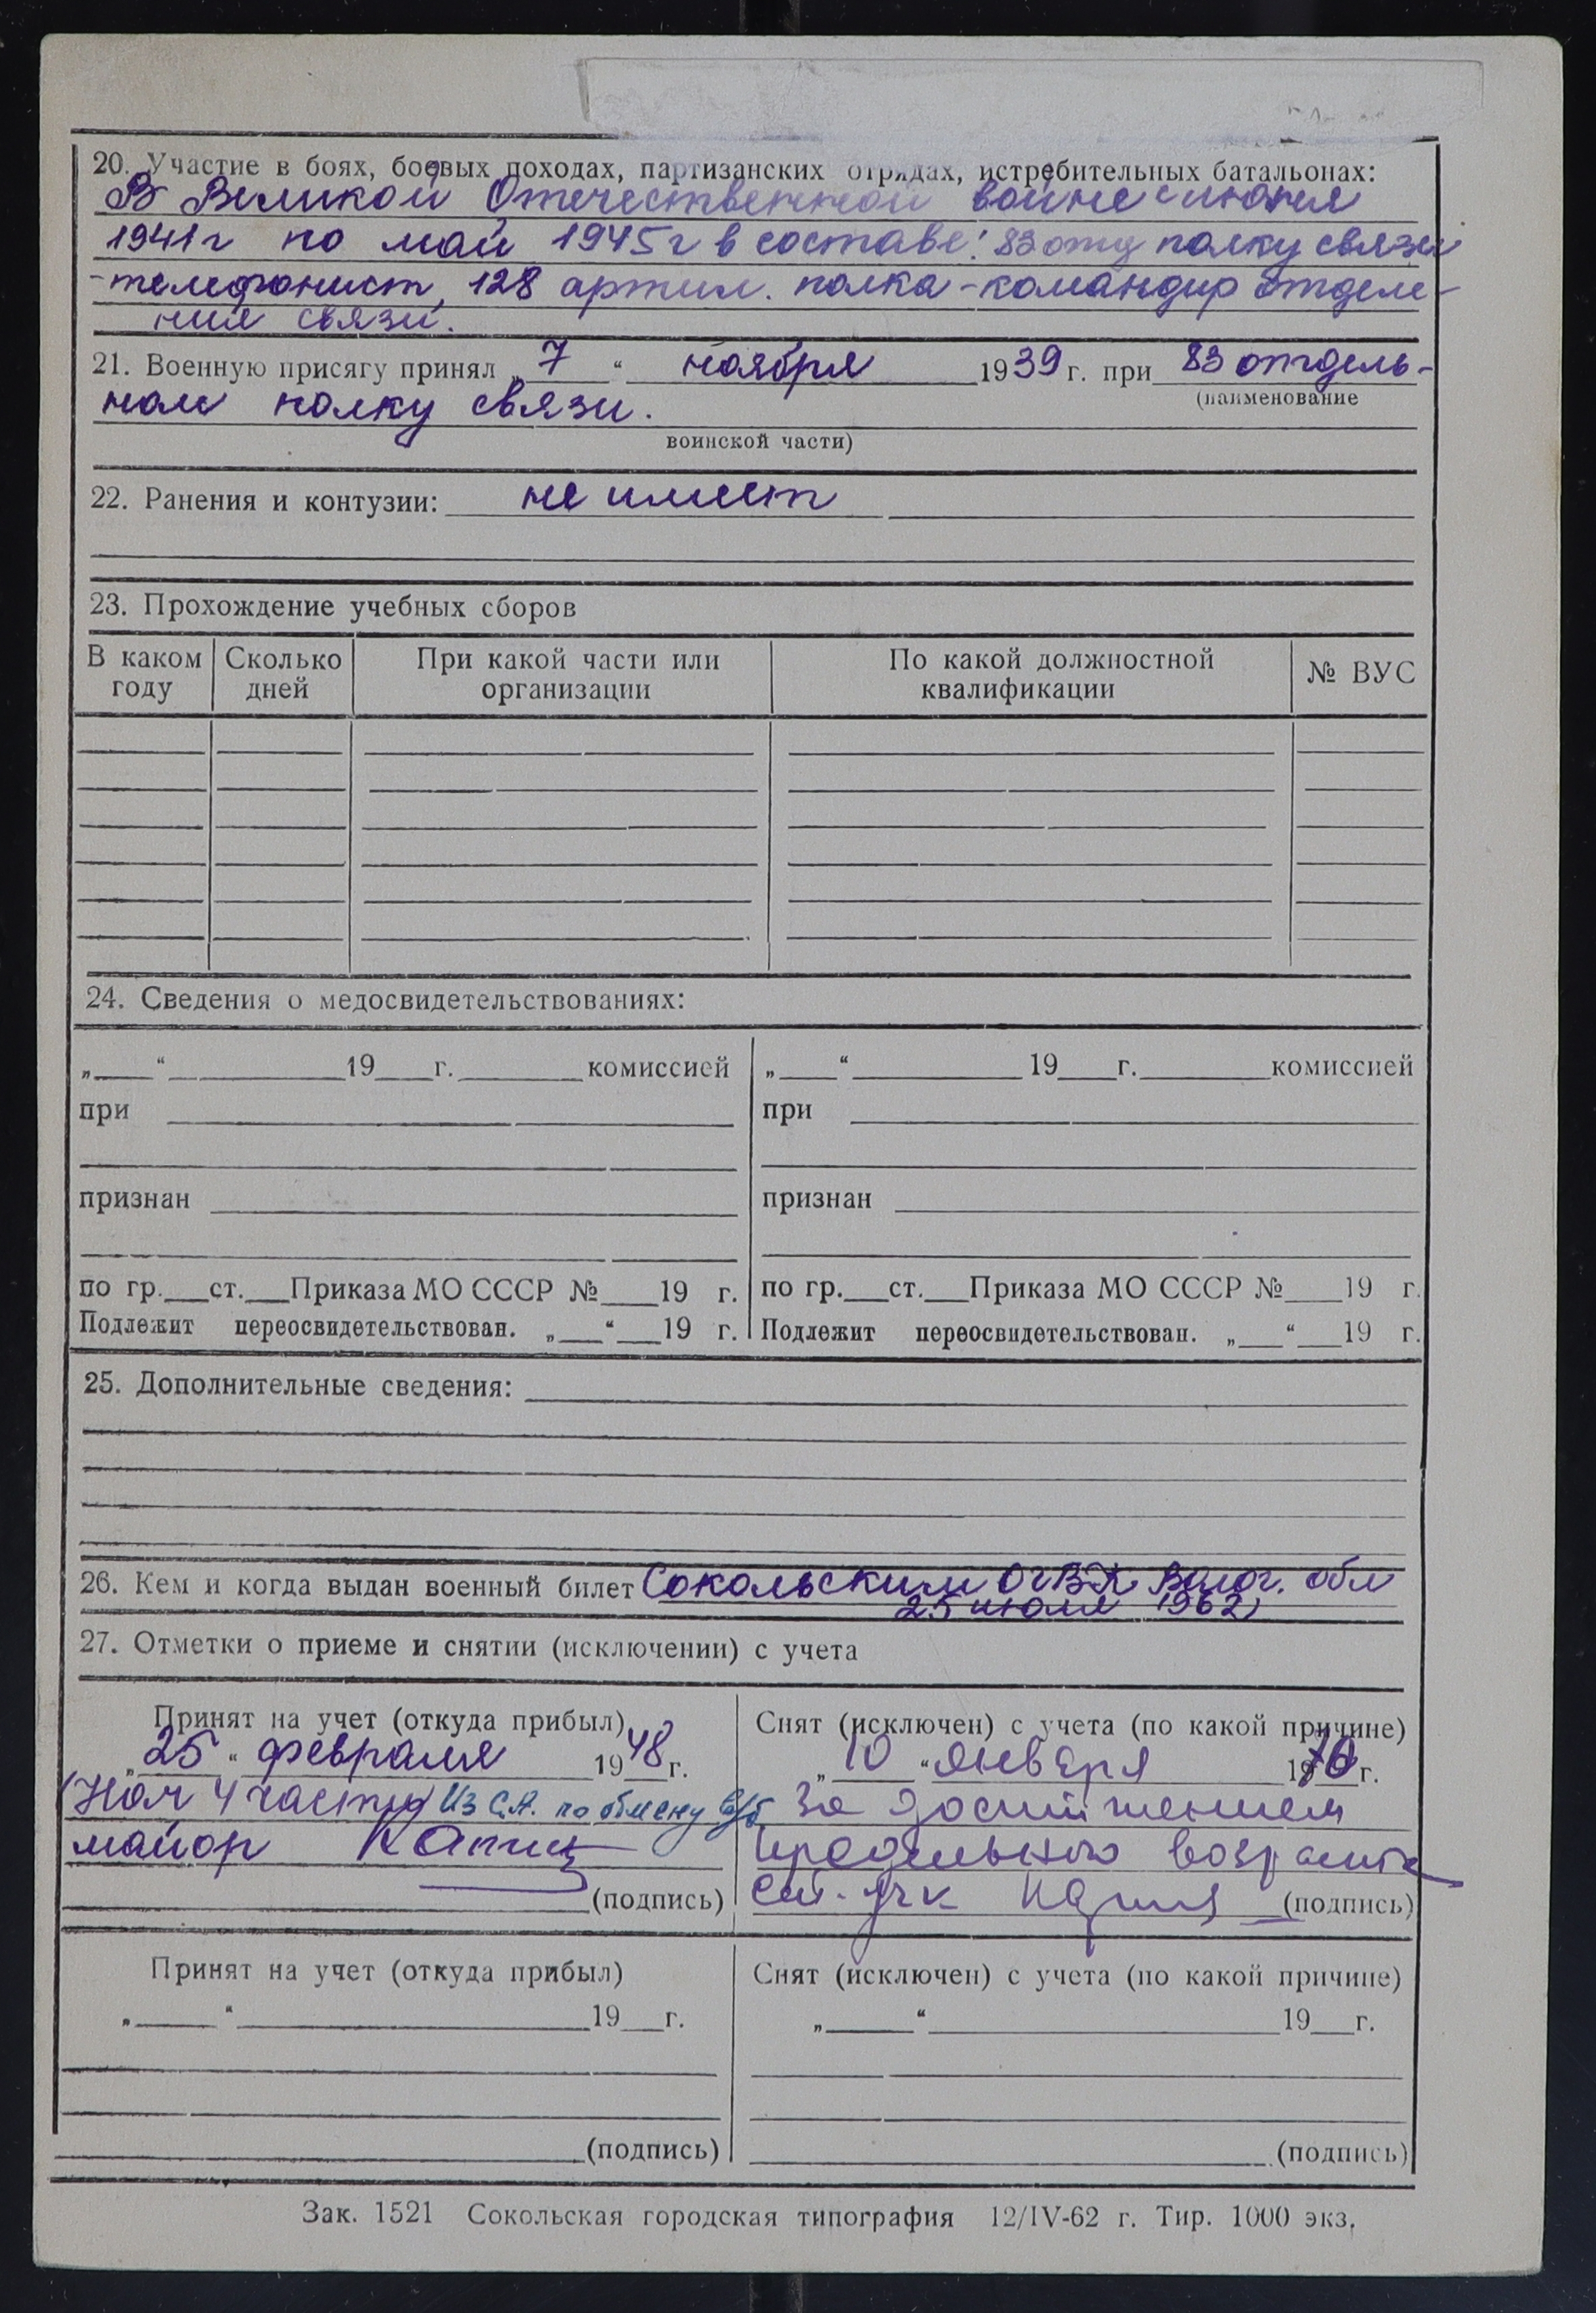 20. Участие в боях, боевых походах, партизанских отрядах, истребительных батальонах:
В Великой Отечественной войне с июня
1941 г по май 1945 г в составе: 83 отд полку связи
-телефонист, 128 артил. полка - командир отделе-
ния связи.
21. Военную присягу принял „ 7 “ ноября 1939 г. при 83 отдель-
(наименование
ном полку связи.
воинской части)
22. Ранения и контузии: не имеет
23. Прохождение учебных сборов
В каком году Сколько дней При какой части или организации По какой должностной квалификации № ВУС
24. Сведения о медосвидетельствованиях:
„ “ 19 г. комиссией „ “ 19 г. комиссией
при при
признан признан
по гр. ст. Приказа МО СССР № 19 г. по гр. ст. Приказа МО СССР № 19 г.
Подлежит переосвидетельствован. „ “ 19 г. Подлежит переосвидетельствован. „ “ 19 г.
25. Дополнительные сведения:
26. Кем и когда выдан военный билет Сокольским ОГВК Волог. обл
25 июля 1962
27. Отметки о приеме и снятии (исключении) с учета
Принят на учет (откуда прибыл) Снят (исключен) с учета (по какой причине)
„ 25 “ февраля 1948 г. „ 10 “ января 1970 г.
Нач 4 части Из С.А. по обмену в/б За достижением
майор предельного возраста
(подпись) (подпись)
Принят на учет (откуда прибыл) Снят (исключен) с учета (по какой причине)
„ “ 19 г. „ “ 19 г.
(подпись) (подпись)
Зак. 1521 Сокольская городская типография 12/IV-62 г. Тир. 1000 экз.